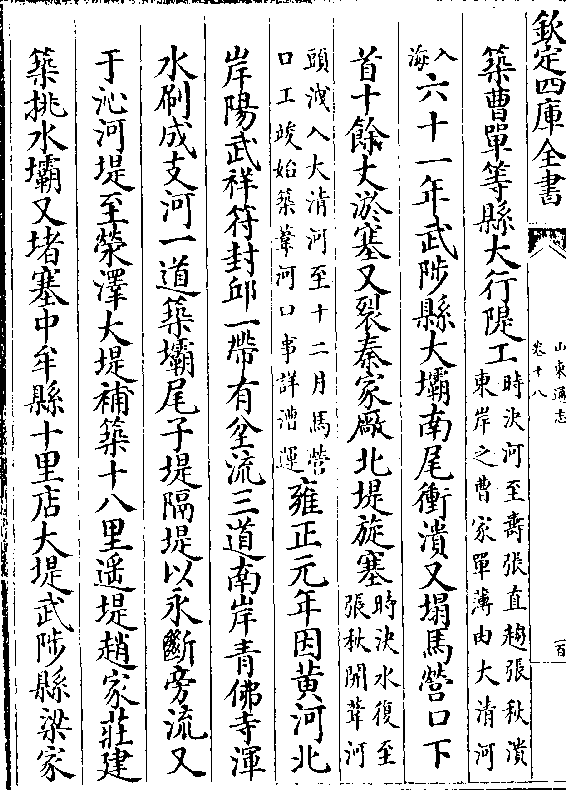 欽定四庫全書
山東通志
卷十八
百
築曹單等縣大行隄工時決河至壽張直趨張秋潰東岸之曹家單薄由大清河
入海六十一年武陟縣大壩南尾衝潰又塌馬營口下
首十餘丈淤塞又裂秦家厰北堤旋塞時決水復至張秋開葦河
頭洩入大清河至十二月馬營口工竣始築葦河口事詳漕運雍正元年因黄河北
岸陽武祥符封邱一帶有坌流三道南岸青佛寺渾
水刷成支河一道築壩尾子堤隔堤以永斷旁流又
于沁河堤至榮澤大堤補築十八里遥堤趙家莊建
築挑水壩又堵塞中牟縣十里店大堤武陟縣梁家